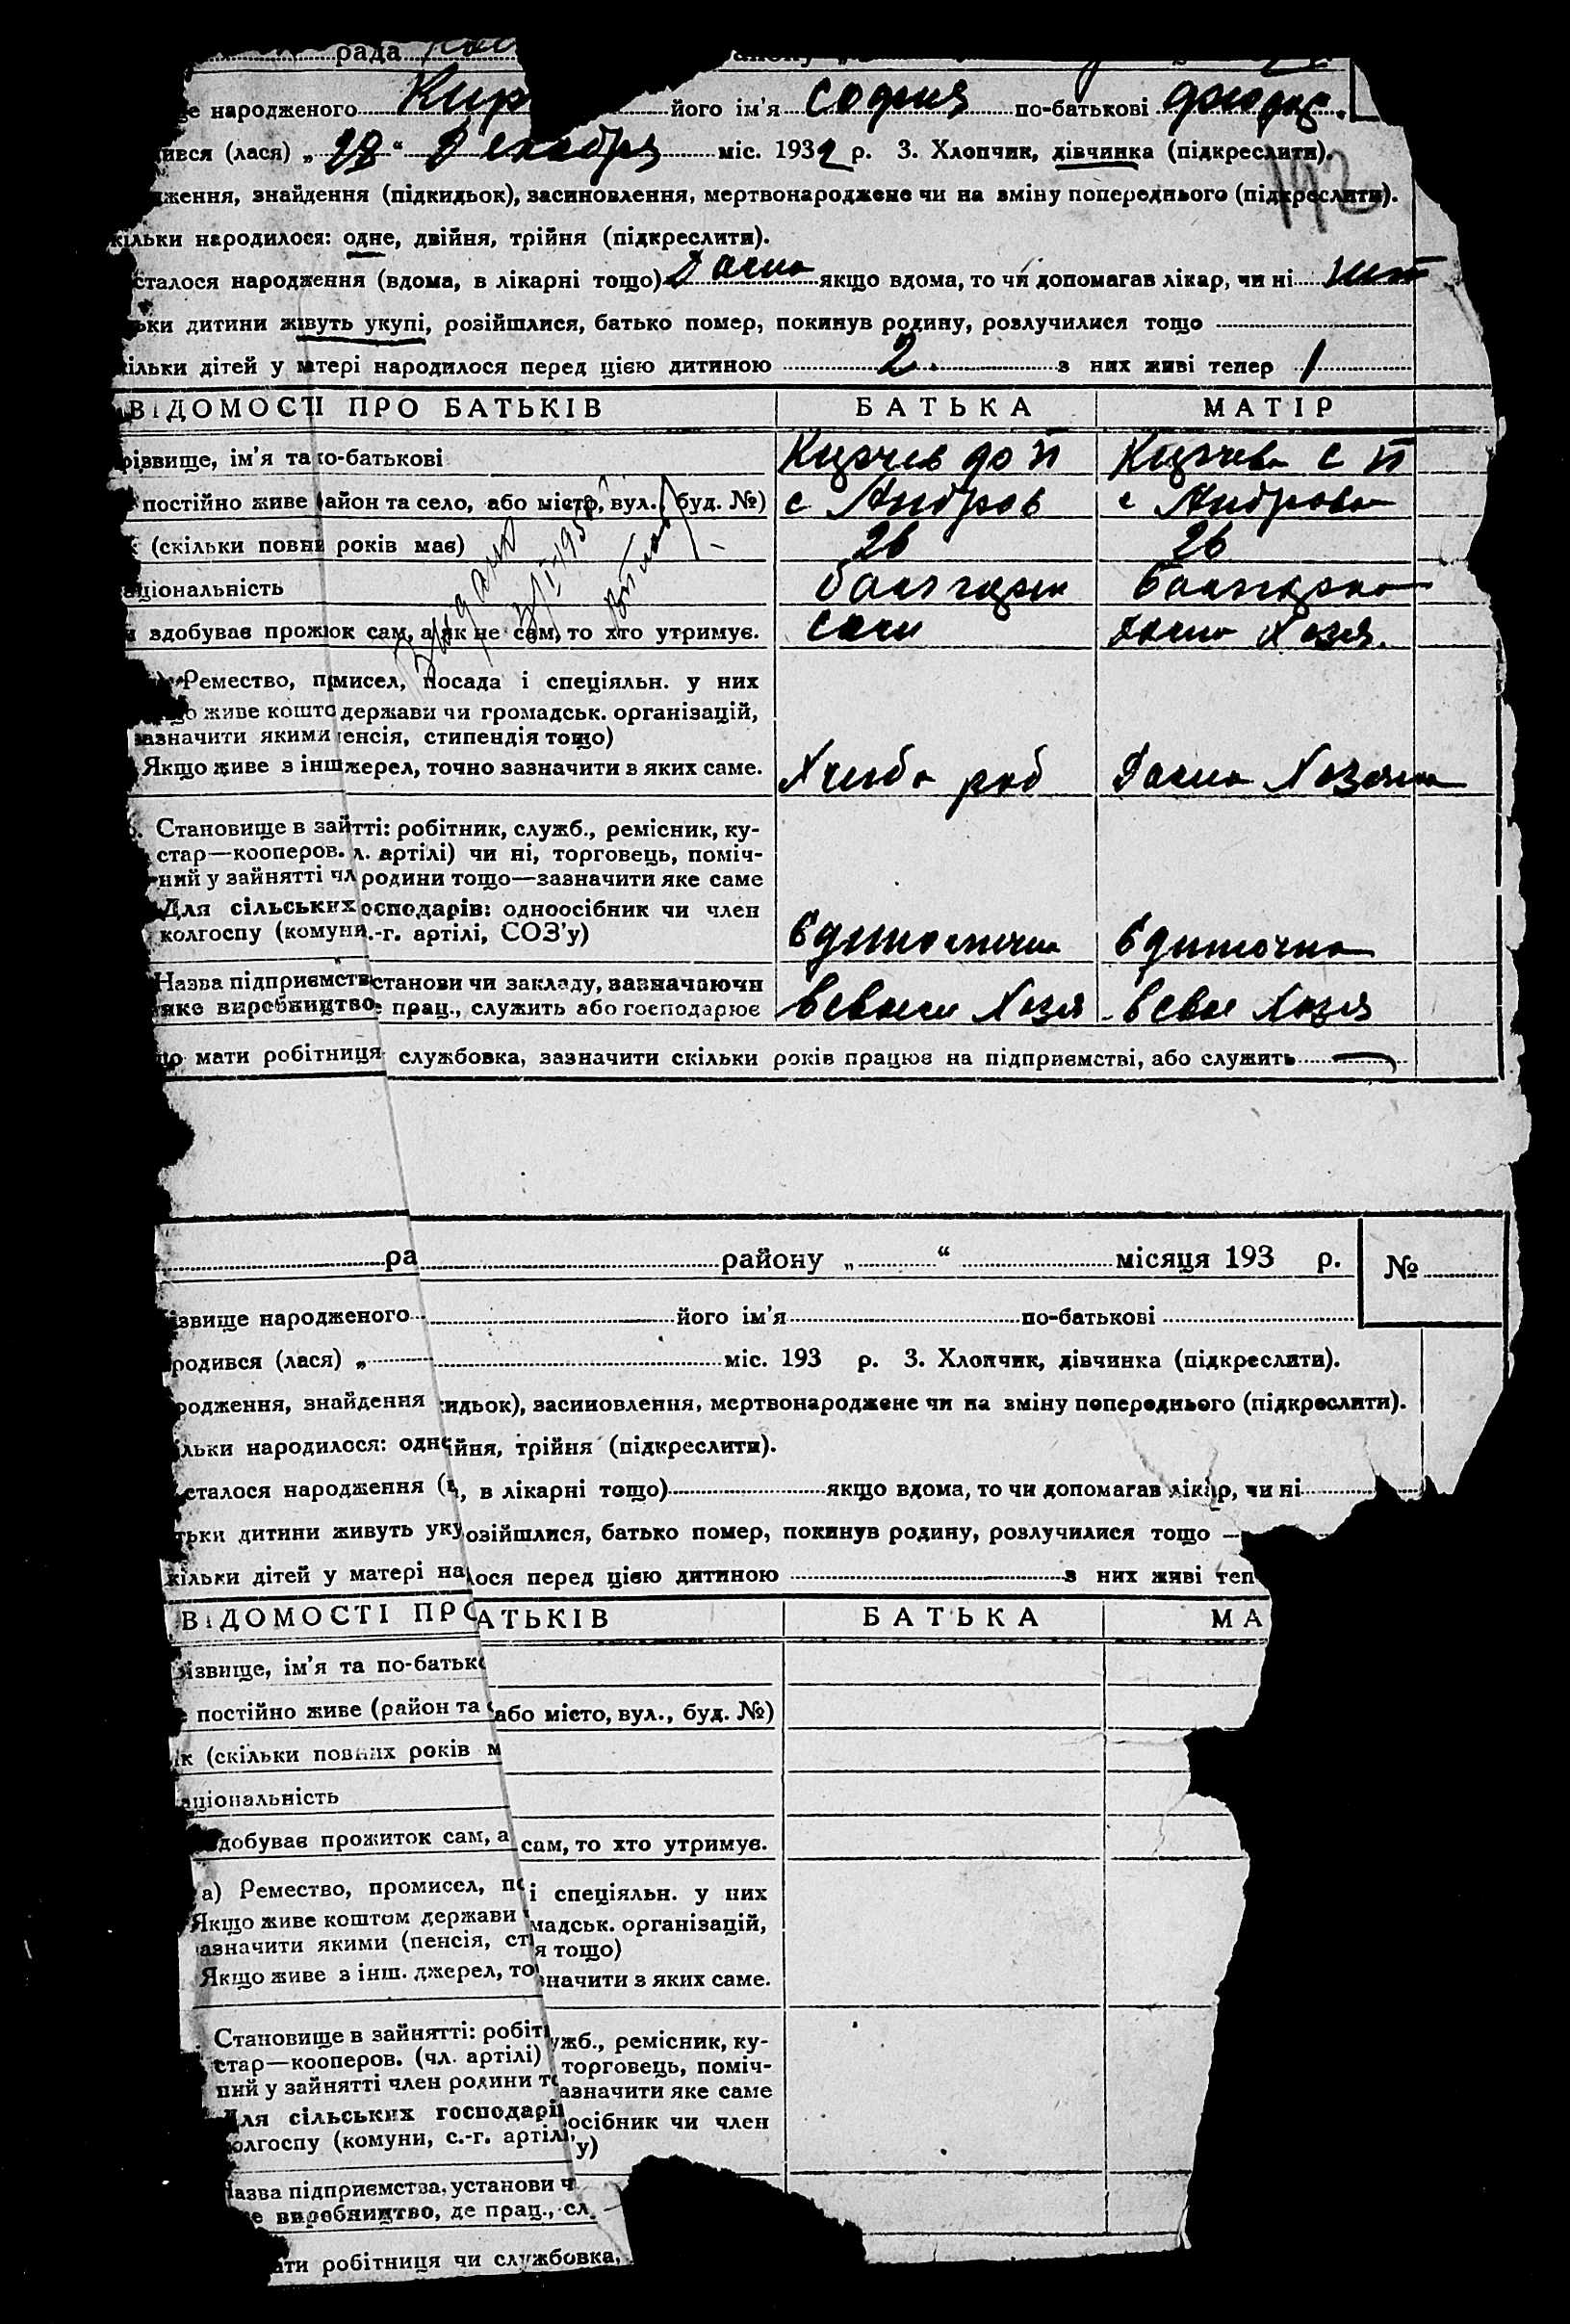 рада
народженого Кир його ім'я София по-батькові
ився (лася) „ 28 “ Декабря міс. 1932 р. 3. Хлопчик, дівчинка (підкреслити).
192
ження, знайдення (підкидьок), засиновлення, мертвонароджене чи на зміну попереднього (підкреслити).
кільки народилося: одне, двійня, трійня (підкреслити).
сталося народження (вдома, в лікарні тощо) Дома якщо вдома, то чи допомагав лікар, чи ні нет
ьки дитини живуть укупі, розійшлися, батько помер, покинув родину, розлучилися тощо
кільки дітей у матері народилося перед цією дитиною 2. з них живі тепер 1
ВІДОМОСТІ ПРО БАТЬКІВ БАТЬКА МАТІР
різвище, ім'я та по-батькові
постійно живе район та село, або місто, вул., буд. №) с Андров с Андровка
(скільки повни років має) 26 26
аціональність болгарин болгарка
здобуває прожиток сам, а як не сам, то хто утримує. сам домо хозя.
Ремество, промисел, посада і спеціяльн. у них
о живе кошто держави чи громадськ. організацій,
зазначити якими пенсія, стипендія тощо)
Якщо живе з інш джерел, точно зазначити з яких саме. Хлебо роб Домо Хозяйка
Становище в зайнятті: робітник, служб., ремісник, ку-
стар—кооперов. л. артілі) чи ні, торговець, поміч-
ний у зайнятті чл родини тощо—зазначити яке саме
Для сільських господарів: одноосібник чи член
колгоспу (комуни .-г. артілі, СОЗ'у) Единоличник Единочна
Назва підприємств установи чи закладу, зазначаючи
яке виробництво е прац., служить або господарює в своем Хозя в свое Хозя
що мати робітниця службовка, зазначити скільки років працює на підприємстві, або служить —
ра району „ “ місяця 193 р. №
ізвище народженого його ім'я по-батькові
родився (лася) „ міс. 193 р. 3. Хлопчик, дівчинка (підкреслити).
родження, знайдення идьок), засиновлення, мертвонароджене чи на зміну попереднього (підкреслити).
ільки народилося: одне ійня, трійня (підкреслити).
сталося народження (в, в лікарні тощо) якщо вдома, то чи допомагав лікар, чи ні
тьки дитини живуть уку озійшлися, батько помер, покинув родину, розлучилися тощо —
кільки дітей у матері на лося перед цією дитиною з них живі теп
ВІДОМОСТІ ПРО АТЬКІВ БАТЬКА МА
різвище, ім'я та по-батько
постійно живе (район та або місто, вул., буд. №)
ік (скільки повних років м
аціональність
добуває прожиток сам, а сам, то хто утримує.
а) Ремество, промисел, по і спеціяльн. у них
Якщо живе коштом держави мадськ. організацій,
азначити якими (пенсія, ст я тощо)
Якщо живе з інш. джерел, то значити з яких саме.
Становище в зайнятті: робіт ужб., ремісник, ку-
стар—кооперов. (чл. артілі) торговець, поміч-
ний у зайнятті член родини то азначити яке саме
Для сільських господарі осібник чи член
олгоспу (комуни, с.-г. артілі, у)
Назва підприємства, установи ч
е виробництво, де прац., сл
ати робітниця чи службовка,